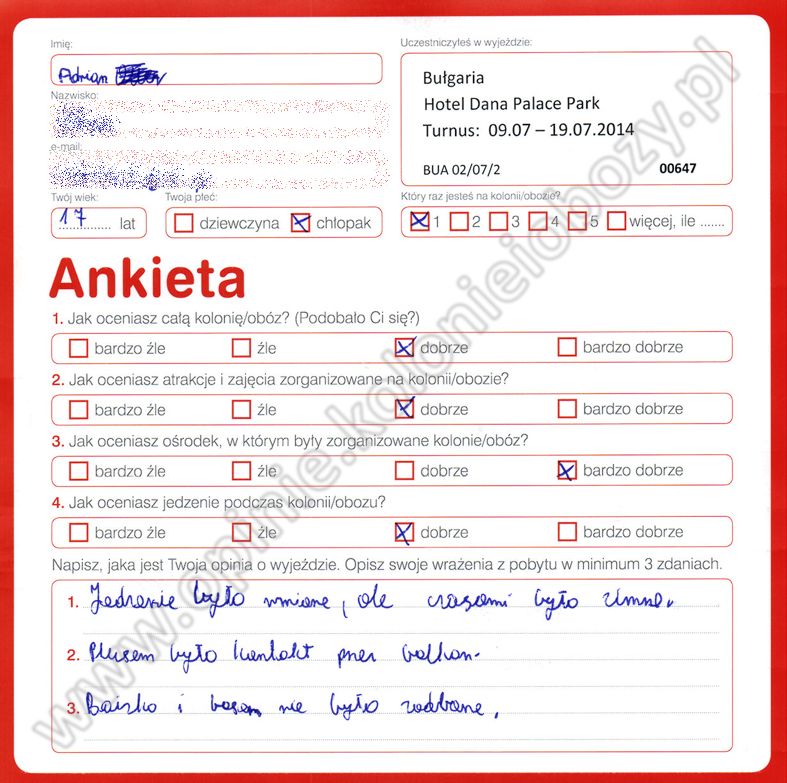 Imię:
Uczestniczyłeś w wyjeździe:
Adrian
Bułgaria
Hotel Dana Palace Park
Turnus: 09.07 – 19.07.2014
BUA 02/07/2 00647
Nazwisko:
e-mail:
Twój wiek: Twoja płeć: Który raz jesteś na kolonii/obozie?
17 lat dziewczyna chłopak 1 2 3 4 5 więcej, ile .......
Ankieta
1. Jak oceniasz całą kolonię/obóz? (Podobało Ci się?)
bardzo źle źle dobrze bardzo dobrze
2. Jak oceniasz atrakcje i zajęcia zorganizowane na kolonii/obozie?
bardzo źle źle dobrze bardzo dobrze
3. Jak oceniasz ośrodek, w którym były zorganizowane kolonie/obóz?
bardzo źle źle dobrze bardzo dobrze
4. Jak oceniasz jedzenie podczas kolonii/obozu?
bardzo źle źle dobrze bardzo dobrze
Napisz, jaka jest Twoja opinia o wyjeździe. Opisz swoje wrażenia z pobytu w minimum 3 zdaniach.
1. Jedzenie było , ale czasami było zimne.
2. Plusem był kontakt przez balkon.
3. Boisko i basen nie było zadbane.
www.opinie.kolonieiobozy.pl